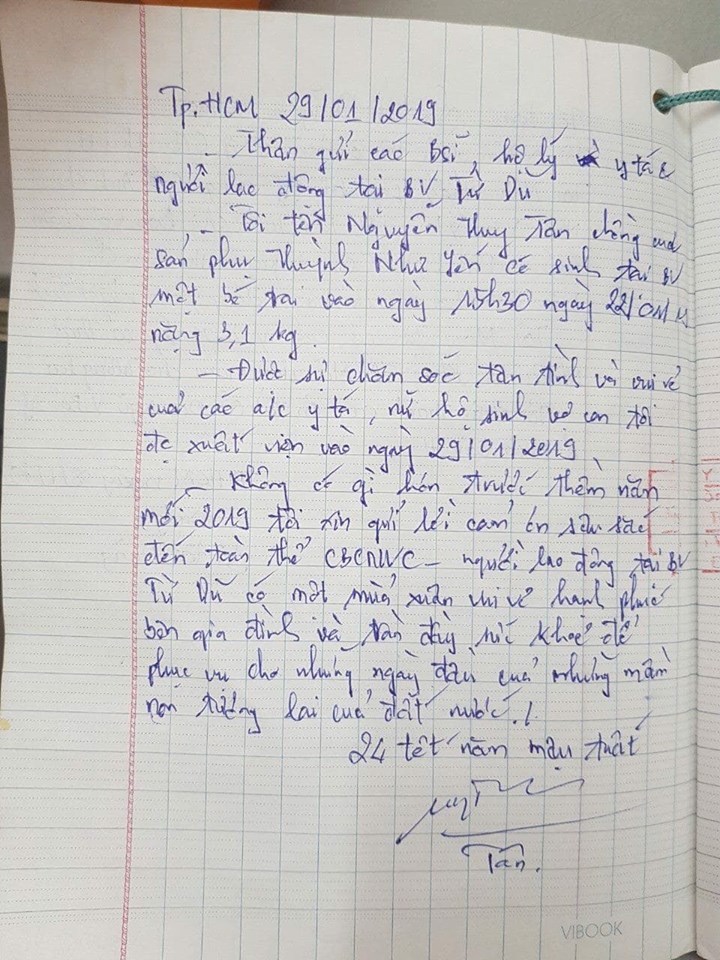 Tp. HCM 29/01/2019
- Thân gửi các BSĩ, hộ lý y tá &
người lao động tại BV Từ Dũ
- Tôi tên Nguyễn Huy Tân chồng của
sản phụ Huỳnh Như Yến có sinh tại BV
một bé trai vào ngày 15h30 ngày 22/01/19
nặng 3,1 kg.
- Được sự chăm sóc tận tình và vui vẻ
của các a/c y tá, nữ hộ sinh vợ con tôi
đc xuất viện vào ngày 29/01/2019.
- Không có gì hơn trước thềm năm
mới 2019 tôi xin gửi lời cảm ơn sâu sắc
đến toàn thể CBCNVC - người lao động tại BV
Từ Dũ có một mùa xuân vui vẻ hạnh phúc
bên gia đình và tràn đầy sức khoẻ để
phục vụ cho những ngày đầu của những mầm
non tương lai của đất nước ./.
24 tết năm mậu tuất
Tân.
VIBOOK